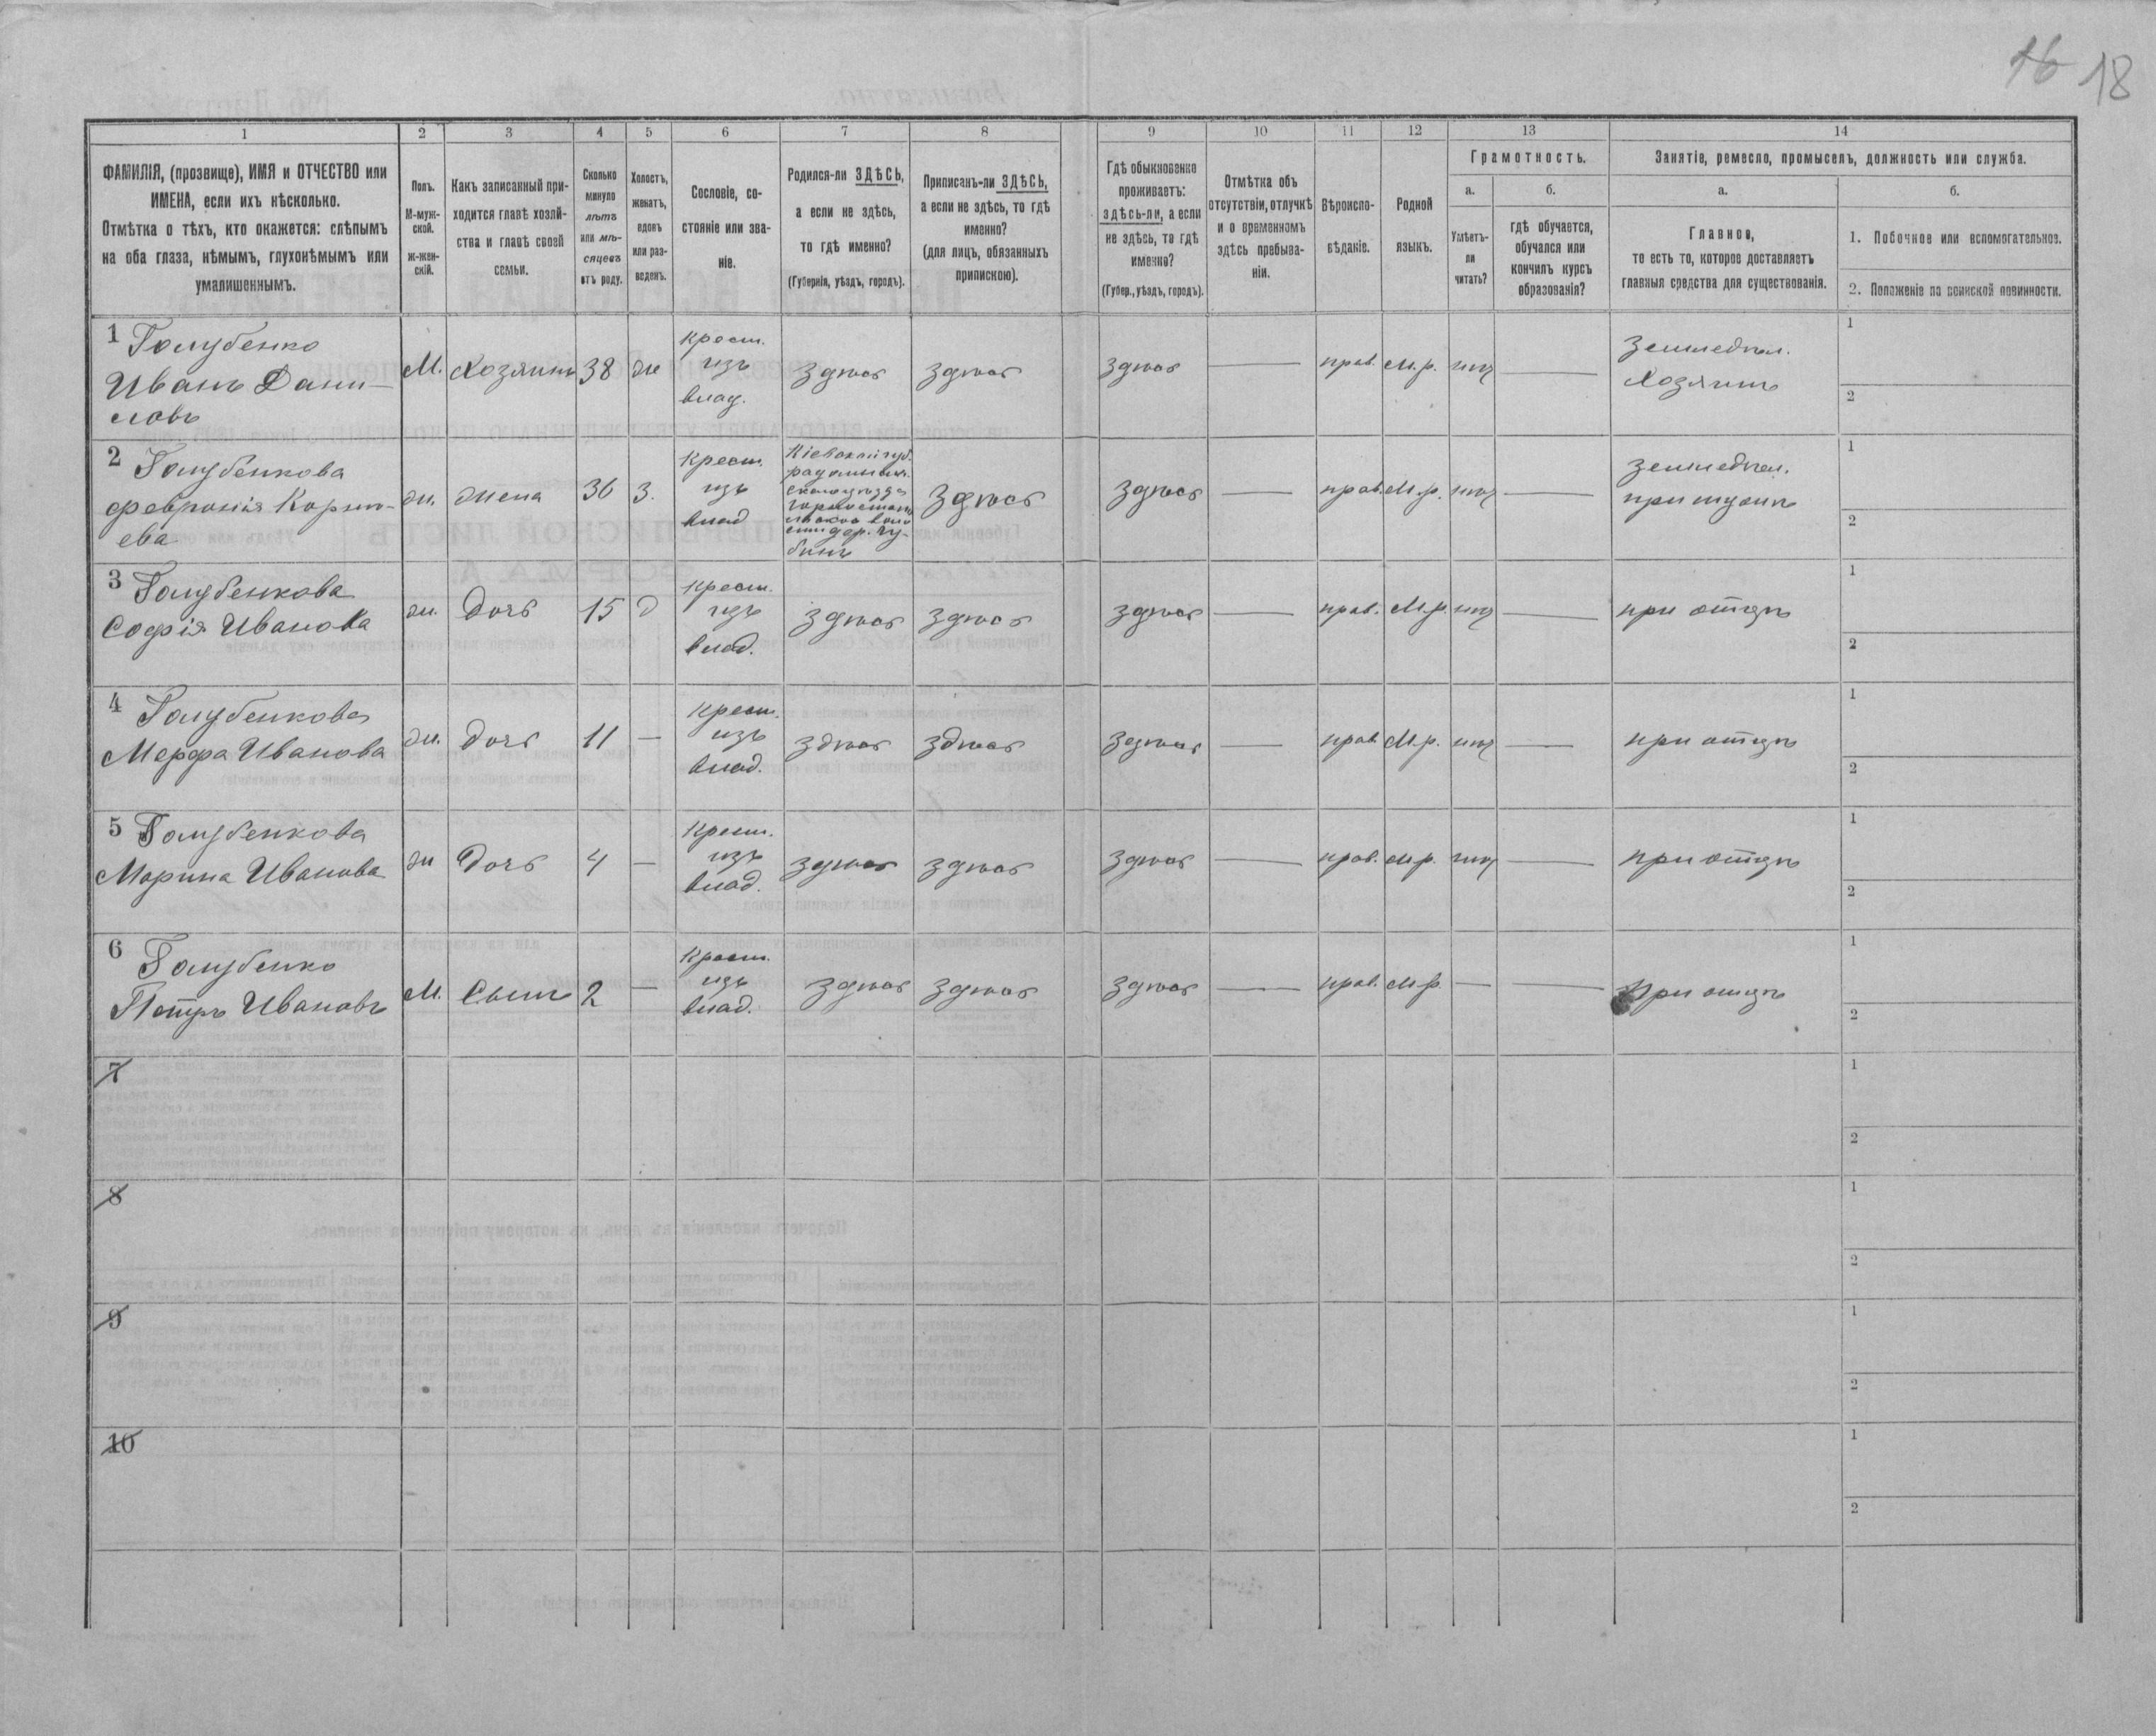 16 18
1 2 3 4 5 6 7 8 9 10 11 12 13 14
ФАМИЛІЯ, (прозвище), ИМЯ и ОТЧЕСТВО или
ИМЕНА, если ихъ нѣсколько.
Отмѣтка о тѣхъ, кто окажется: слѣпымъ
на оба глаза, нѣмымъ, глухонѣмымъ или
умалишеннымъ.
Полъ.
М-муж-
ской.
ж-жен-
скій.
Какъ записанный при-
ходится главѣ хозяй-
ства и главѣ своей
семьи.
Сколько
минуло
лѣтъ
или мѣ-
сяцевъ
отъ роду.
Холостъ,
женатъ,
вдовъ
или раз-
веденъ.
Сословіе, со-
стояніе или зва-
ніе.
Родился-ли ЗДѢСЬ,
а если не здѣсь,
то гдѣ именно?
(Губернія, уѣздъ, городъ).
Приписанъ-ли ЗДѢСЬ,
а если не здѣсь, то гдѣ
именно?
(для лицъ, обязанныхъ
припискою).
Гдѣ обыкновенно
проживаетъ:
здѣсь-ли, а если
не здѣсь, то гдѣ
именно?
(Губер., уѣздъ, городъ).
Отмѣтка объ
отсутствіи, отлучкѣ
и о временномъ
здѣсь пребыва-
ніи.
Вѣроиспо-
вѣданіе.
Родной
языкъ.
Грамотность.
а.
Умѣетъ-
ли
читать?
б.
гдѣ обучается,
обучался или
кончилъ курсъ
образованія?
Занятіе, ремесло, промыселъ, должность или служба.
а.
Главное,
то есть то, которое доставляетъ
главныя средства для существованія.
б.
1. Побочное или вспомогательное.
2. Положеніе по воинской повинности.
1 Голубенко
Иванъ Дани-
ловъ
М. Хозяинъ 38 ж
крест.
изъ
влад.
здѣсь здѣсь здѣсь — прав. М.р. нѣт —
земледѣл.
Хозяинъ
1
2
2 Голубенкова
Февронія Корнѣ-
ева
ж. жена 36 з.
крест.
изъ
влад
Кіевской губ.
радомысл.
скаго уѣзда
горностай-
дер. Гу-
бинъ
здѣсь здѣсь — прав. М.р. нѣт —
земледѣл.
при мужѣ
1
2
3 Голубенкова
Софія Иванова
ж. Дочь 15 д
крест.
изъ
влад.
здѣсь здѣсь здѣсь — прав. М.р. нѣт — при отцѣ
1
2
4 Голубенкова
Мерфа Иванова
ж. дочь 11 —
крест.
изъ
влад.
здѣсь здѣсь здѣсь — прав. М.р. нѣт — при отцѣ
1
2
5 Голубенкова
Марина Иванова
ж Дочь 4 —
крест.
изъ
влад.
здѣсь здѣсь здѣсь — прав. М.р. нѣт — при отцѣ
1
2
6 Голубенко
Петръ Ивановъ
М. Сынъ 2 —
крест.
изъ
влад.
здѣсь здѣсь здѣсь — прав. М.р. — — При отцѣ
1
2
7
1
2
8
1
2
9
1
2
10
1
2